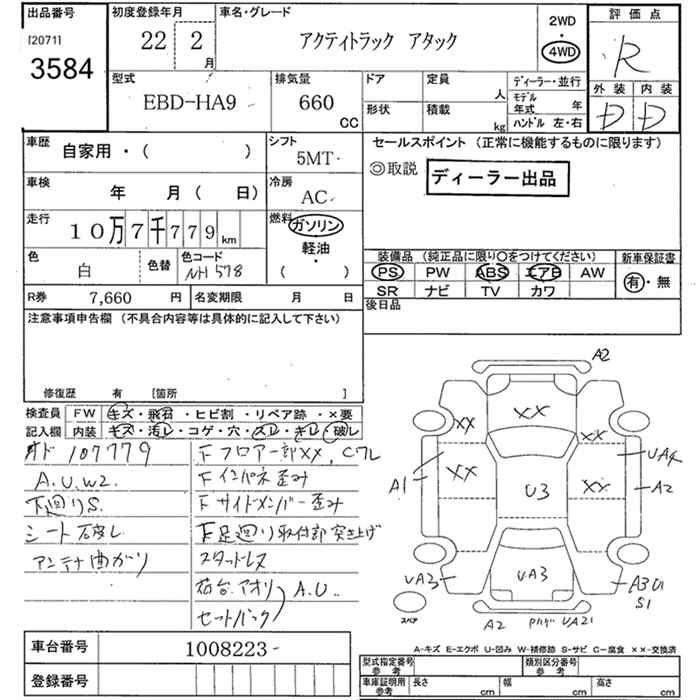 出品番号
[2071]
3584
初度登録年月
22 2 月
車名・グレード
アクティトラック アタック
2WD
4WD
評価点
R
外装 内装
D D
型式
EBD-HA9
排気量
660 CC
ドア
定員 人
形状
積載 kg
ディーラー・並行
モデル年式 年
ハンドル 左・右
車歴
自家用・( )
シフト
5MT
車検
年 月( 日)
冷房
AC
走行
10万7千779km
燃料
ガソリン
軽油・
( )
色
白
色替
色コード
NH578
R券 7,660 円
名変期限 月 日
セールスポイント (正常に機能するものに限ります)
◎取説
ディーラー出品
装備品 (純正品に限り〇をつけてください)
PS PW ABS エアB AW
SR ナビ TV カワ
新車保証書
有・無
後日品
注意事項申告欄 (不具合内容等は具体的に記入して下さい)
修復歴 有 [箇所 ]
検査員記入欄
FW キズ・飛石・ヒビ割・リペア跡・×要
内装 キズ・汚レ・コゲ・穴・スレ・キレ・破レ
オド 107779
A.U.W2.
下廻りS.
シート破レ
アンテナ曲がり
Fフロアー部XX, Cワレ
Fインパネ歪み
Fサイドメンバー歪み
F足廻り取付部突き上げ
スタッドレス
荷台.アオリ A.U..
セートバック
A2
XX
XX
XX
UA4
A1
XX
U3
XX
A2
UA3
UA3
A3U1
S1
スペア
A2
UA21
A-キズ E-エクボ U-凹み W-補修跡 S-サビ C-腐食 ××-交換済
車台番号
1008223
登録番号
型式指定番号 参考
類別区分番号 参考
車庫証明用 参考
長さ cm
幅 cm
高さ cm